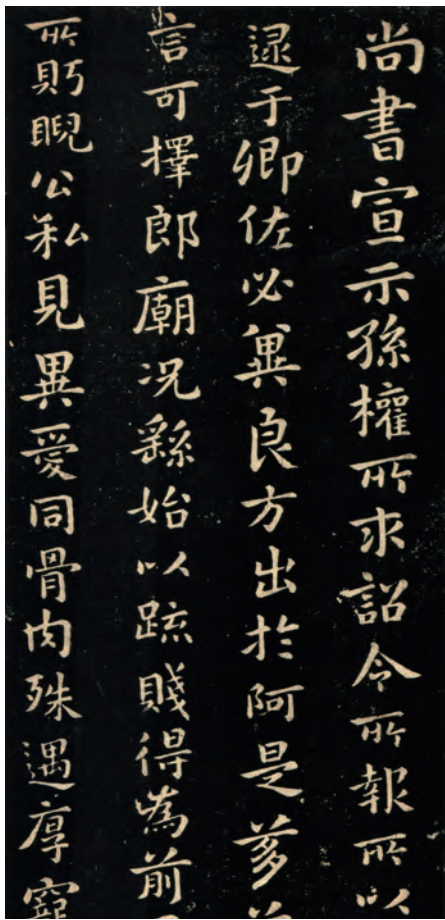 尚書宣示孫權所求詔令所報所以
逮于卿佐必冀良方出於阿是芻
言可擇郎廟况繇始以疏賤得為前
所眄睨公私見異愛同骨肉殊遇厚寵